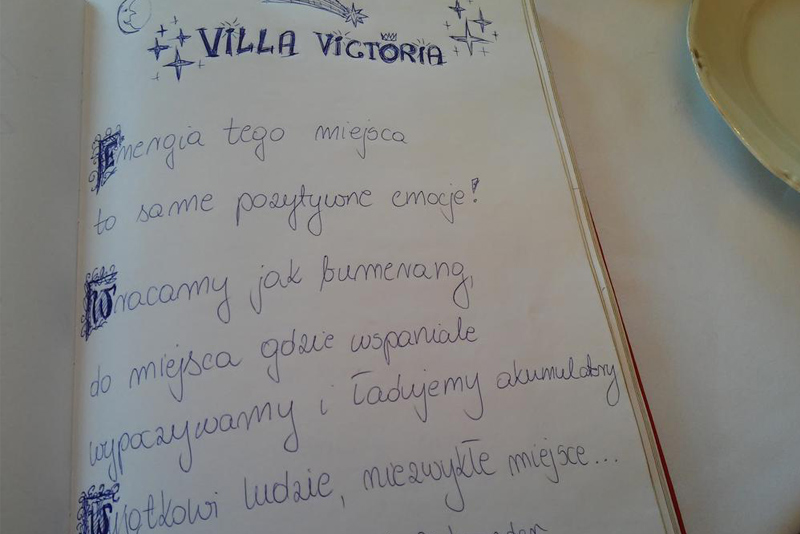 VILLA VICTORIA
Energia tego miejsca
to same pozytywne emocje!
Wracamy jak bumerang,
do miejsca gdzie wspaniale
wypoczywamy i ładujemy akumulatory
Wyjątkowi ludzie, niezwykłe miejsce...